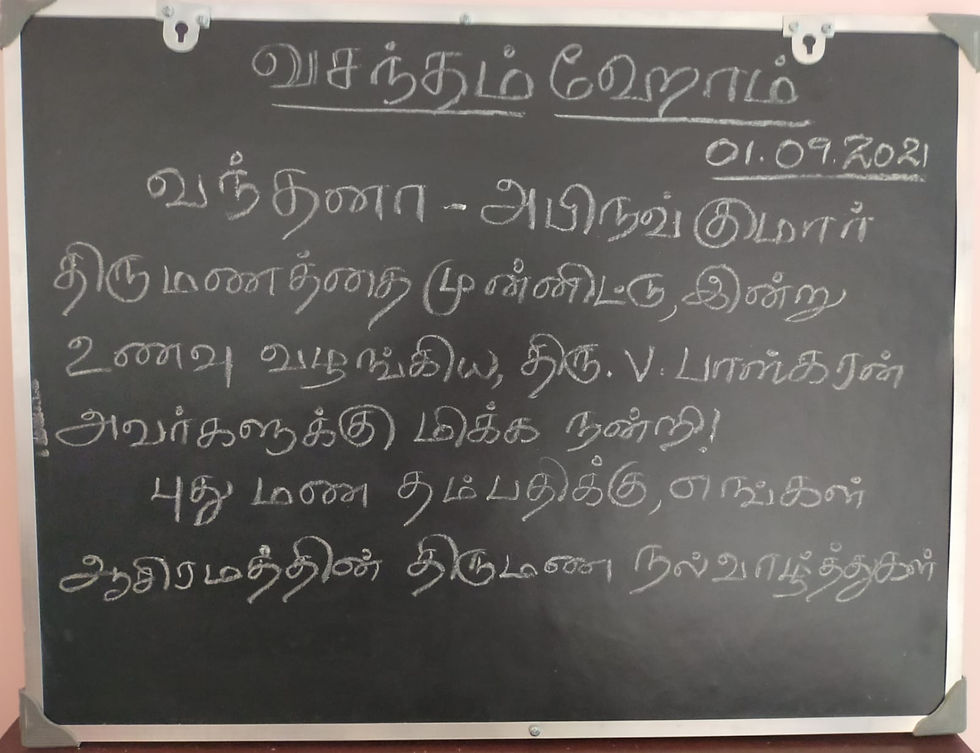 வசந்தம் ஹோம்
01.09.2021
வந்தனா - அபிநவ் குமார்
திருமணத்தை முன்னிட்டு, இன்று
உணவு வழங்கிய, திரு. V. பாஸ்கரன்
அவர்களுக்கு மிக்க நன்றி!
புது மண தம்பதிக்கு, எங்கள்
ஆசிரமத்தின் திருமண நல்வாழ்த்துகள்